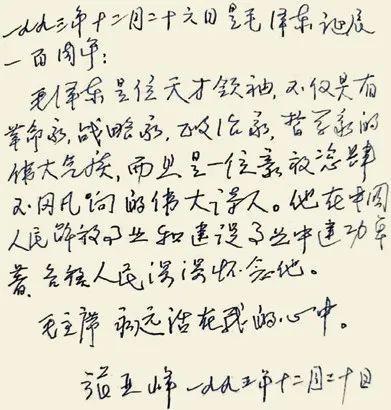 一九九三年十二月二十六日是毛泽东诞辰
一百周年:
毛泽东是位天才领袖,不仅具有
革命家,战略家,政治家,哲学家的
伟大气质,而且是一位豪放恣肆
不同凡响的伟大诗人。他在中国
人民解放事业和建设事业中建功卓
著,各族人民深深怀念他。
毛主席永远活在我的心中。
亚峰 一九九三年十二月二十日